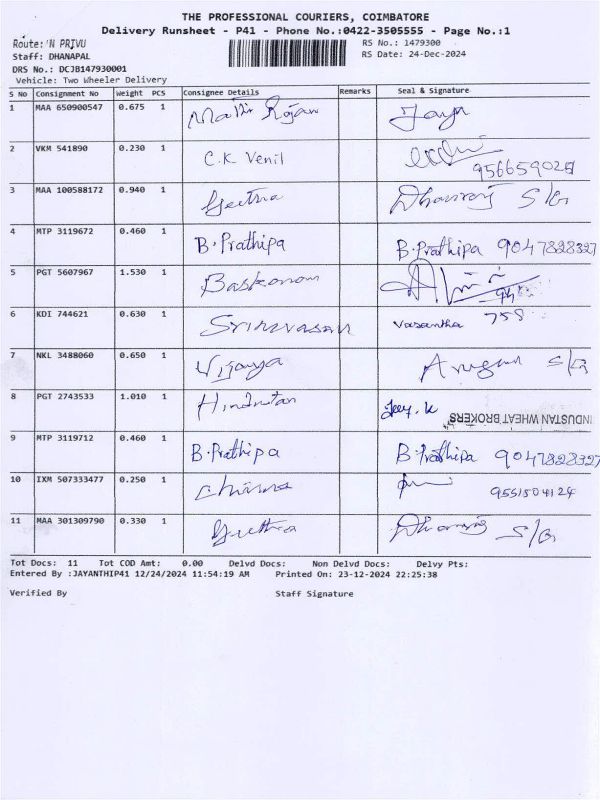 THE PROFESSIONAL COURIERS, COIMBATORE
Delivery Runsheet - P41 - Phone No.:0422-3505555 - Page No.:1
Route:'N PRIVU
RS No.: 1479300
Staff: DHANAPAL
RS Date: 24-Dec-2024
DRS No.: DCJB147930001
Vehicle: Two Wheeler Delivery
S No Consignment No Weight PCS Consignee Details Remarks Seal & Signature
1 MAA 650900547 0.675 1 Jaya
2 VKM 541890 0.230 1 C.K Venil
3 MAA 100588172 0.940 1 Geetha Dhanraj S/G
4 MTP 3119672 0.460 1 B.Prathipa B.Prathipa 9047828327
5 PGT 5607967 1.530 1
6 KDI 744621 0.630 1 Srinivasan Vasantha 758
7 NKL 3488060 0.650 1 Vijaya S/G
8 PGT 2743533 1.010 1 Hindustan
INDUSTAN WHEAT BROKERS
9 MTP 3119712 0.460 1 B.Prathipa B.Prathipa 9047828327
10 IXM 507333477 0.250 1 9551504124
11 MAA 301309790 0.330 1 Geetha Dhanraj S/G
Tot Docs: 11 Tot COD Amt: 0.00 Delvd Docs: Non Delvd Docs: Delvy Pts:
Entered By :JAYANTHIP41 12/24/2024 11:54:19 AM Printed On: 23-12-2024 22:25:38
Verified By Staff Signature